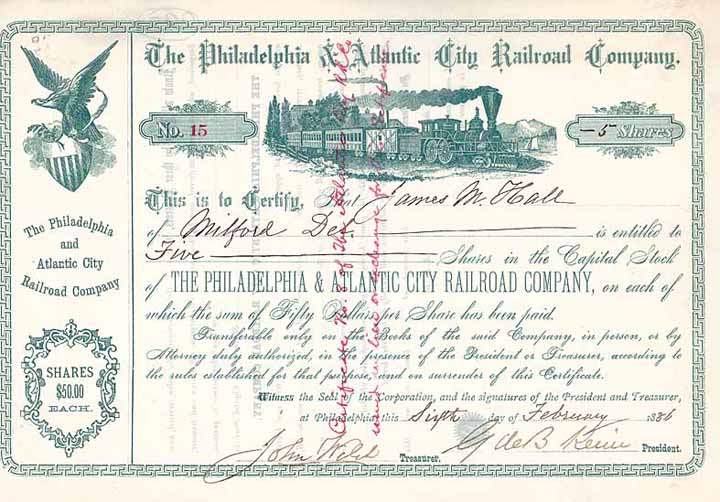 The Philadelphia & Atlantic City Railroad Company.
No. 15
—5 Shares
This is to Certify, That James M. Hall
of Milford Del. is entitled to
Five Shares in the Capital Stock
of THE PHILADELPHIA & ATLANTIC CITY RAILROAD COMPANY, on each of
which the sum of Fifty Dollars per Share has been paid.
Transferable only on the Books of the said Company, in person, or by
Attorney duly authorized, in the presence of the President or Treasurer, according to
the rules established for that purpose, and on surrender of this Certificate.
Witness the Seal of the Corporation, and the signatures of the President and Treasurer,
at Philadelphia this Sixth day of February 1886
John Welsh
Treasurer.
G de B Keim
President.
The Philadelphia
and
Atlantic City
Railroad Company
SHARES
$50.00
EACH.
Certificate No. 8 of The Atlantic City R.R. Co
issued in lieu or exchange for